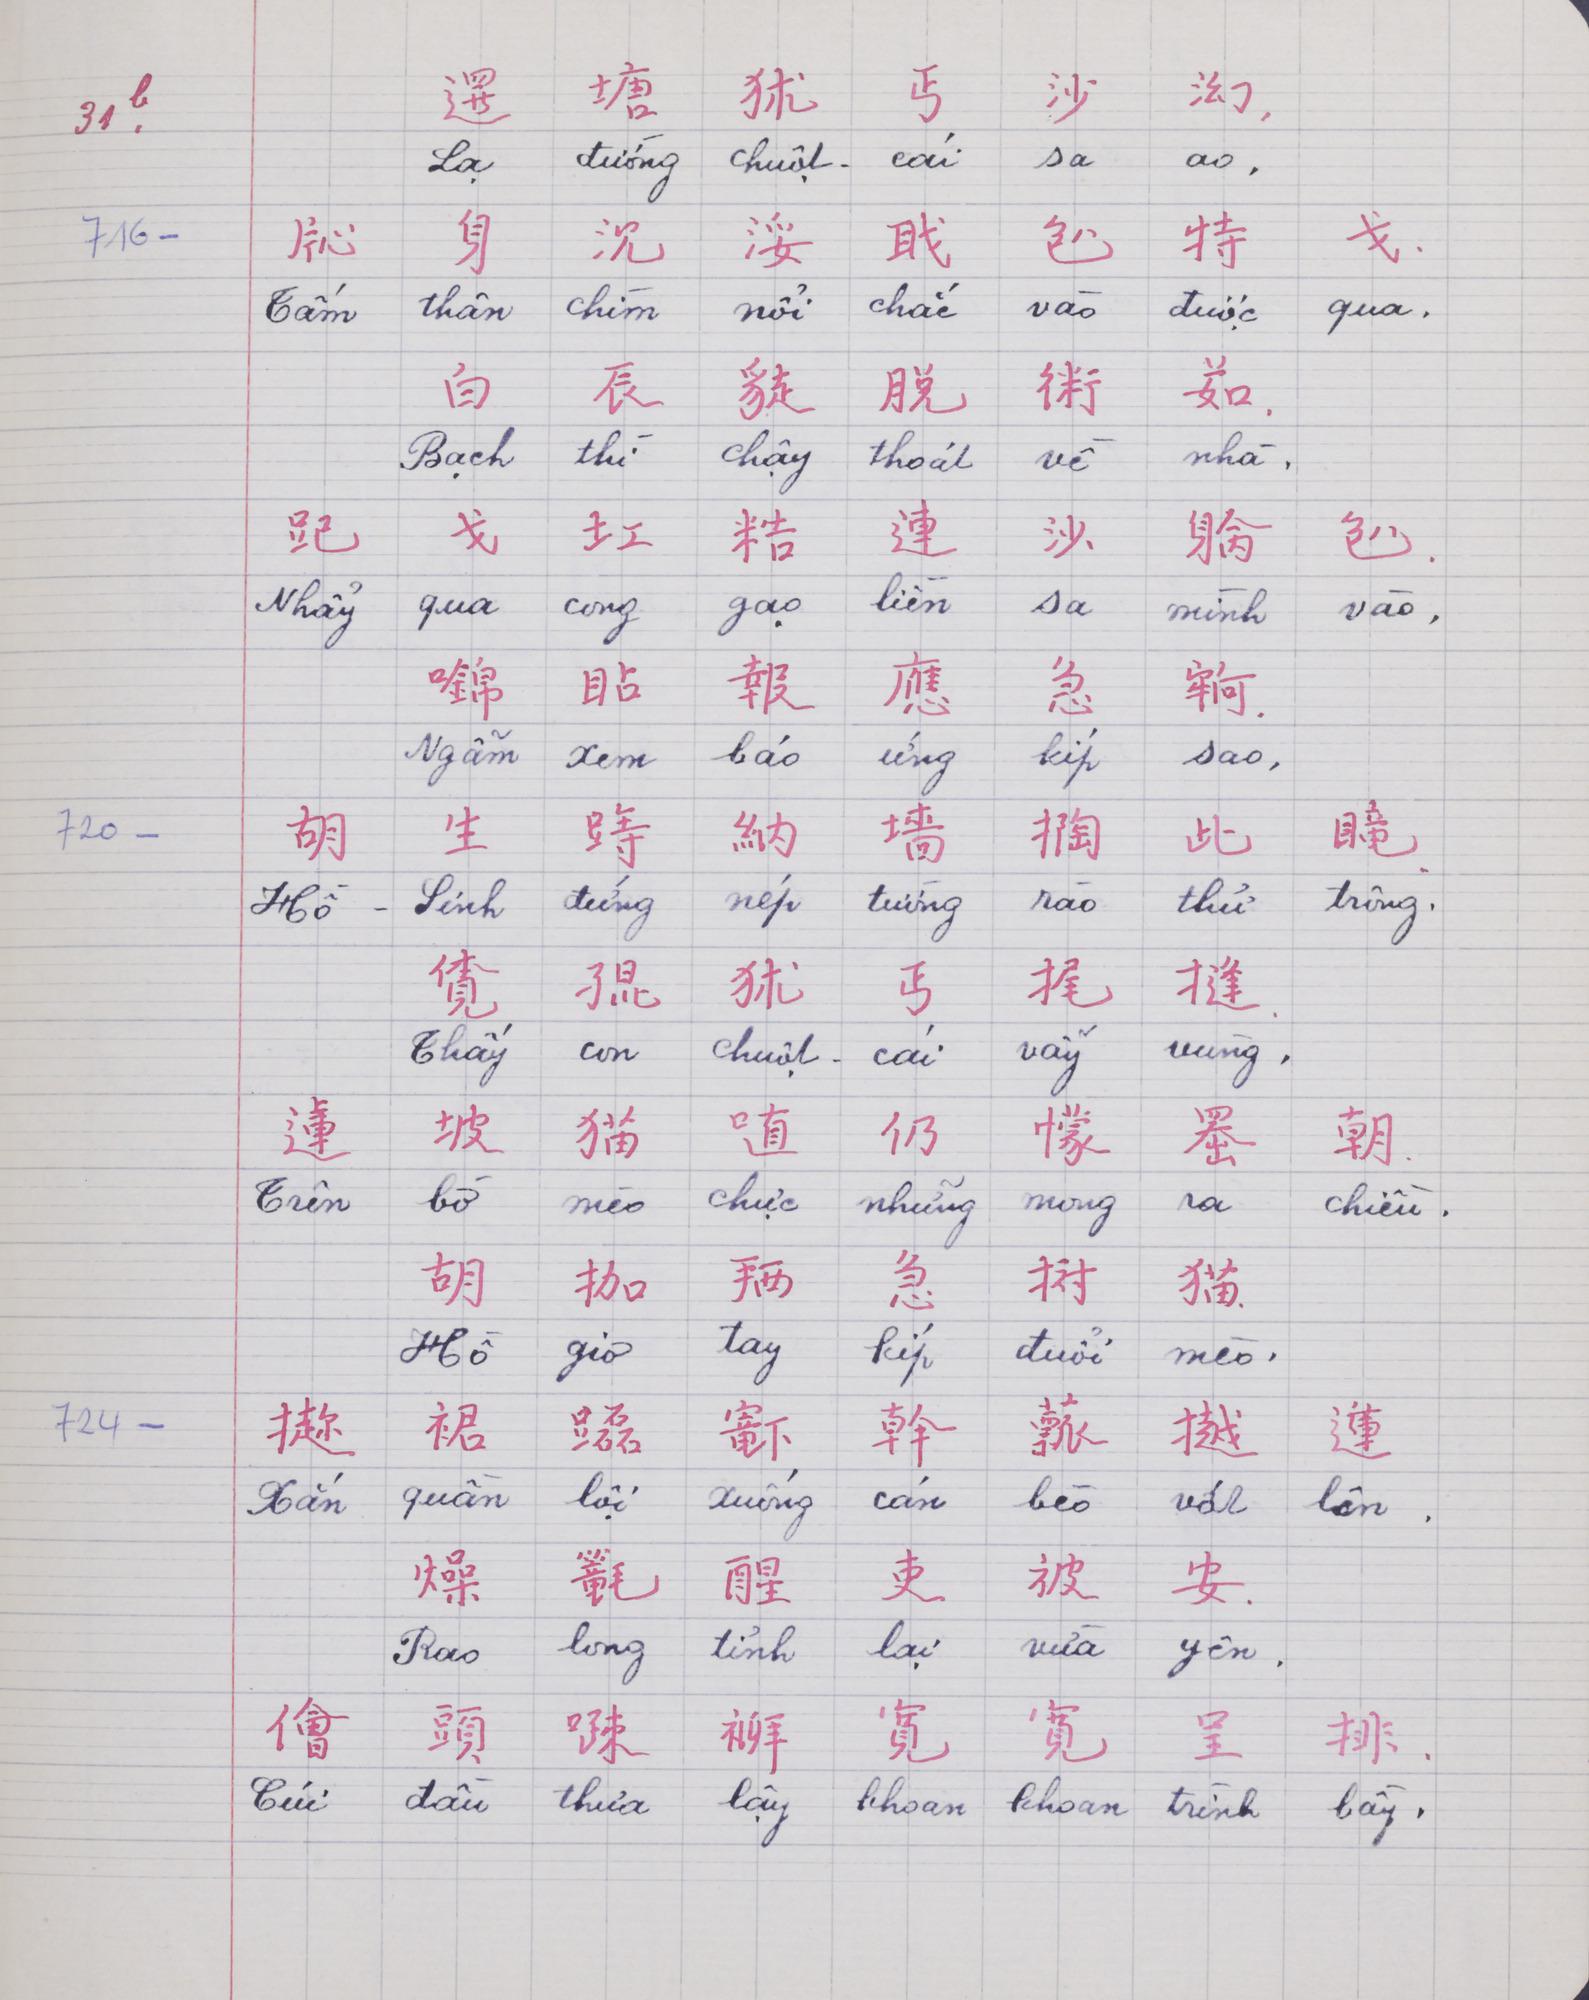 31b.
遻 塘 㹥 丐 沙 泑.
Lạ đường chuột-cái sa ao.
716-
身 沉 浽 戝 𠓨 特 戈.
Tấm thân chìm nổi chắc vào được qua.
白 辰 脱 術 茹.
Bạch thì chạy thoát về nhà.
戈 𡉏 粓 連 沙 𠓨.
Nhẩy qua cong gạo liền sa mình vào.
䀡 報 應 急
Ngẫm xem báo ứng kíp sao.
720-
胡 生 納 墻 掏 此
Hồ-Sinh đứng nép tường rào thử trông.
𡥵 㹥 丐 㧪 摓.
Thấy con chuột-cái vẫy vùng.
坡 猫 仍 懞 朝.
Trên bồ mèo chực những mong ra chiều.
胡 拁 𢬣 急 猫.
Hồ giơ tay kíp đuổi mèo.
724-
裙 幹
Xắn quần lội xuống cán bèo vớt lên.
燥 醒 吏 被 安.
Rao long tỉnh lại vừa yên.
頭 寬 寬 呈 排.
Cúi đầu thưa lậy khoan khoan trình bầy.